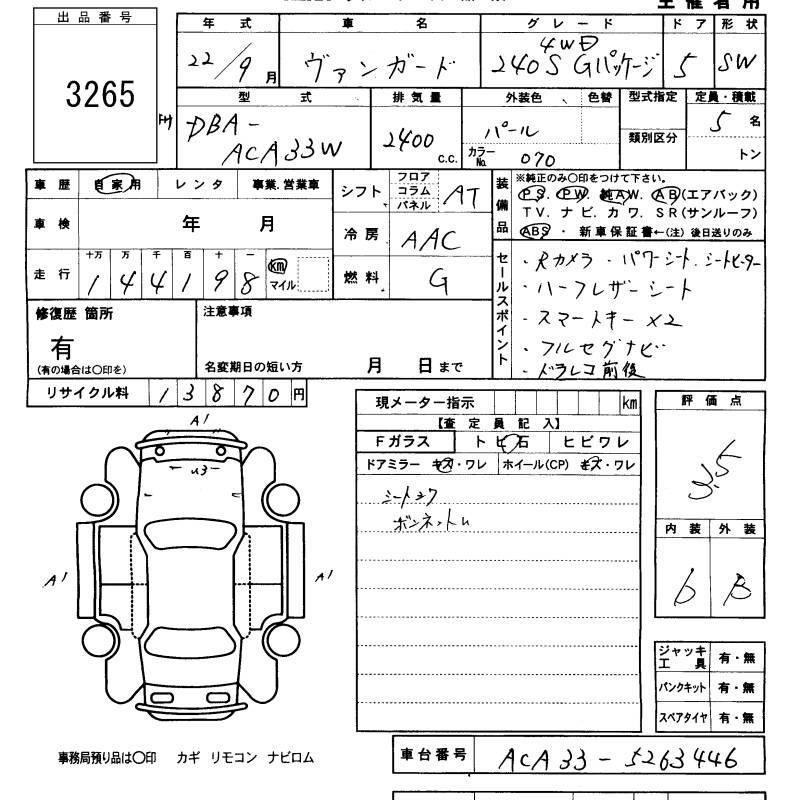 主催者用
出品番号
3265
年式 車名 グレード ドア 形状
22/9月 ヴァンガード 4WD 240S Gパッケージ 5 SW
型式 排気量 外装色 色替 型式指定 定員・積載
DBA-ACA33W 2400c.c. パール 類別区分 5名
カラーNo. 070 トン
車歴 自家用 レンタ 事業,営業車
車検 年 月
走行 十万 万 千 百 十 一
1 4 4 1 9 8 km マイル
シフト フロア コラム パネル AT
冷房 AAC
燃料 G
装備品 ※純正のみ○印をつけて下さい。
PS. PW. 純AW. AB(エアバック)
TV. ナビ. カワ. SR(サンルーフ)
ABS ・ 新車保証書←(注) 後日送りのみ
セールスポイント
・Rカメラ ・パワーシート.シートヒーター
・ハーフレザーシート
・スマートキー×2
・フルセグナビ
・ドラレコ前後
修復歴 箇所
有
(有の場合は○印を)
注意事項
名変期日の短い方 月 日まで
リサイクル料 1 3 8 7 0 円
現メーター指示 km
【査定員記入】
Fガラス トビ石 ヒビワレ
ドアミラー キズ・ワレ ホイール(CP) キズ・ワレ
シートコワ
ボンネットU
評価点
3.5
内装 外装
b B
A1
U3
A1
A1
ジャッキ工具 有・無
パンクキット 有・無
スペアタイヤ 有・無
事務局預り品は○印 カギ リモコン ナビロム
車台番号 ACA33-5263446